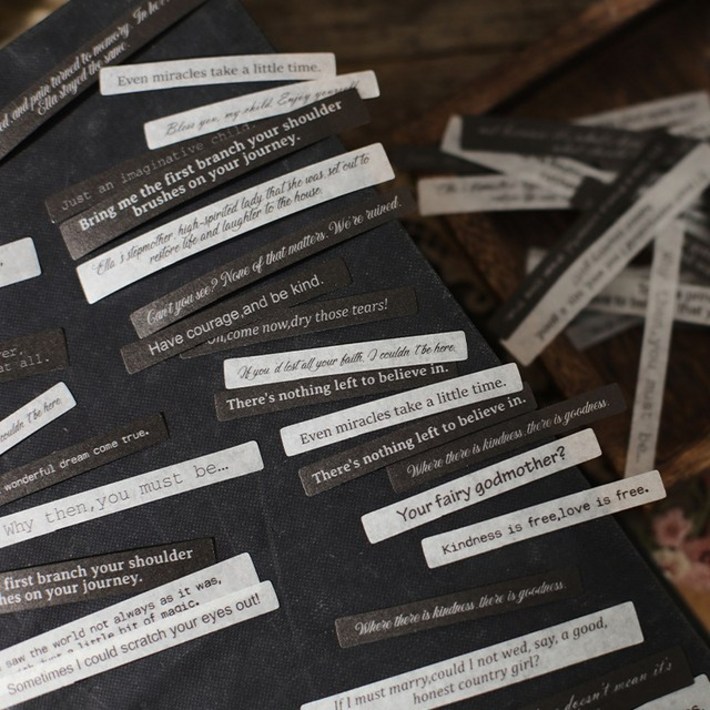 and pain turned to memory. In her
Ella stayed the same.
Even miracles take a little time.
Bless you, my child. Enjoy yourself
Just an imaginative child.
Bring me the first branch your shoulder
brushes on your journey.
Ella's stepmother, high-spirited lady that she was, set out to
restore life and laughter to the house.
Can't you see? None of that matters. We're ruined.
Have courage,and be kind.
come now,dry those tears!
If you'd lost all your faith, I couldn't be here.
There's nothing left to believe in.
Even miracles take a little time.
There's nothing left to believe in.
Where there is kindness,there is goodness.
Your fairy godmother?
Kindness is free,love is free.
at all.
couldn't be here.
wonderful dream come true.
Why then,you must be…
first branch your shoulder
hes on your journey.
saw the world not always as it was,
little bit of magic.
Sometimes I could scratch your eyes out!
Where there is kindness,there is goodness.
If I must marry,could I not wed, say, a good,
honest country girl?
doesn't mean it's
you must be